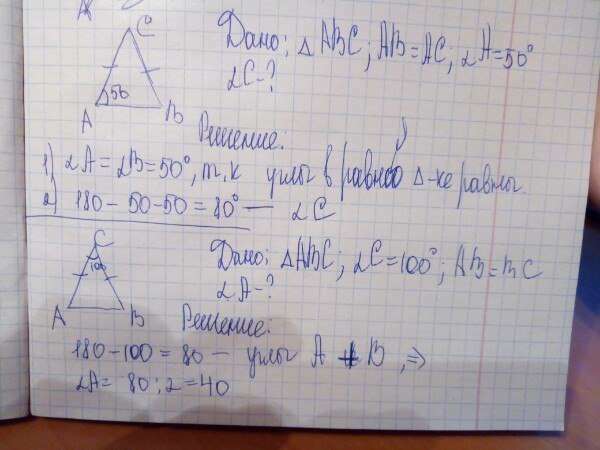 C
Дано: △ ABC; AB=AC; ∠A=50°
∠C-?
50
A B
Решение:
1) ∠A=∠B=50°, т.к углы в равноб △-ке равны
2) 180-50-50=80° — ∠C
C
100
A B
Дано: △ABC; ∠C=100°; AB=BC
∠A-?
Решение:
180-100=80 — углы A + B, ⇒
∠A= 80:2=40